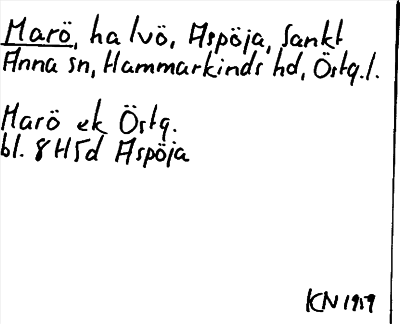 Marö, halvö, Aspöja, Sankt
Anna sn, Hammarkinds hd, Östg.l.
Marö ek Östg.
bl. 8H5d Aspöja
KN 1959